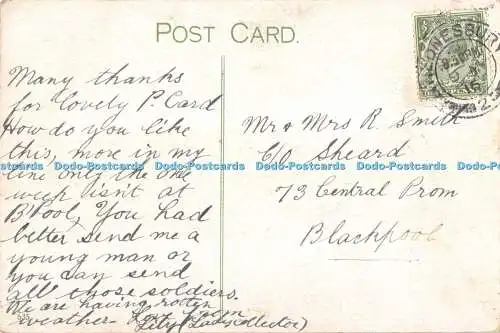 POST CARD.
Many thanks
for lovely P. Card
How do you like
this, more in my
line only the one
week isn't at
B'Pool, You had
better send me a
young man or
you say send
all those soldiers.
We are having rotten
weather
Lily (Lady collector)
Mr & Mrs R. Smith
C/o Sheard
73 Central Prom
Blackpool
Dodo-Postcards Dodo-Postcards Dodo-Postcards Dodo-Postcards Dodo-Postcards